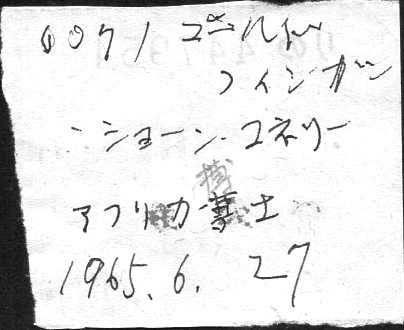 007/ゴールド
フィンガー
・ショーン・コネリー
アフリカ 士
1965.6.27